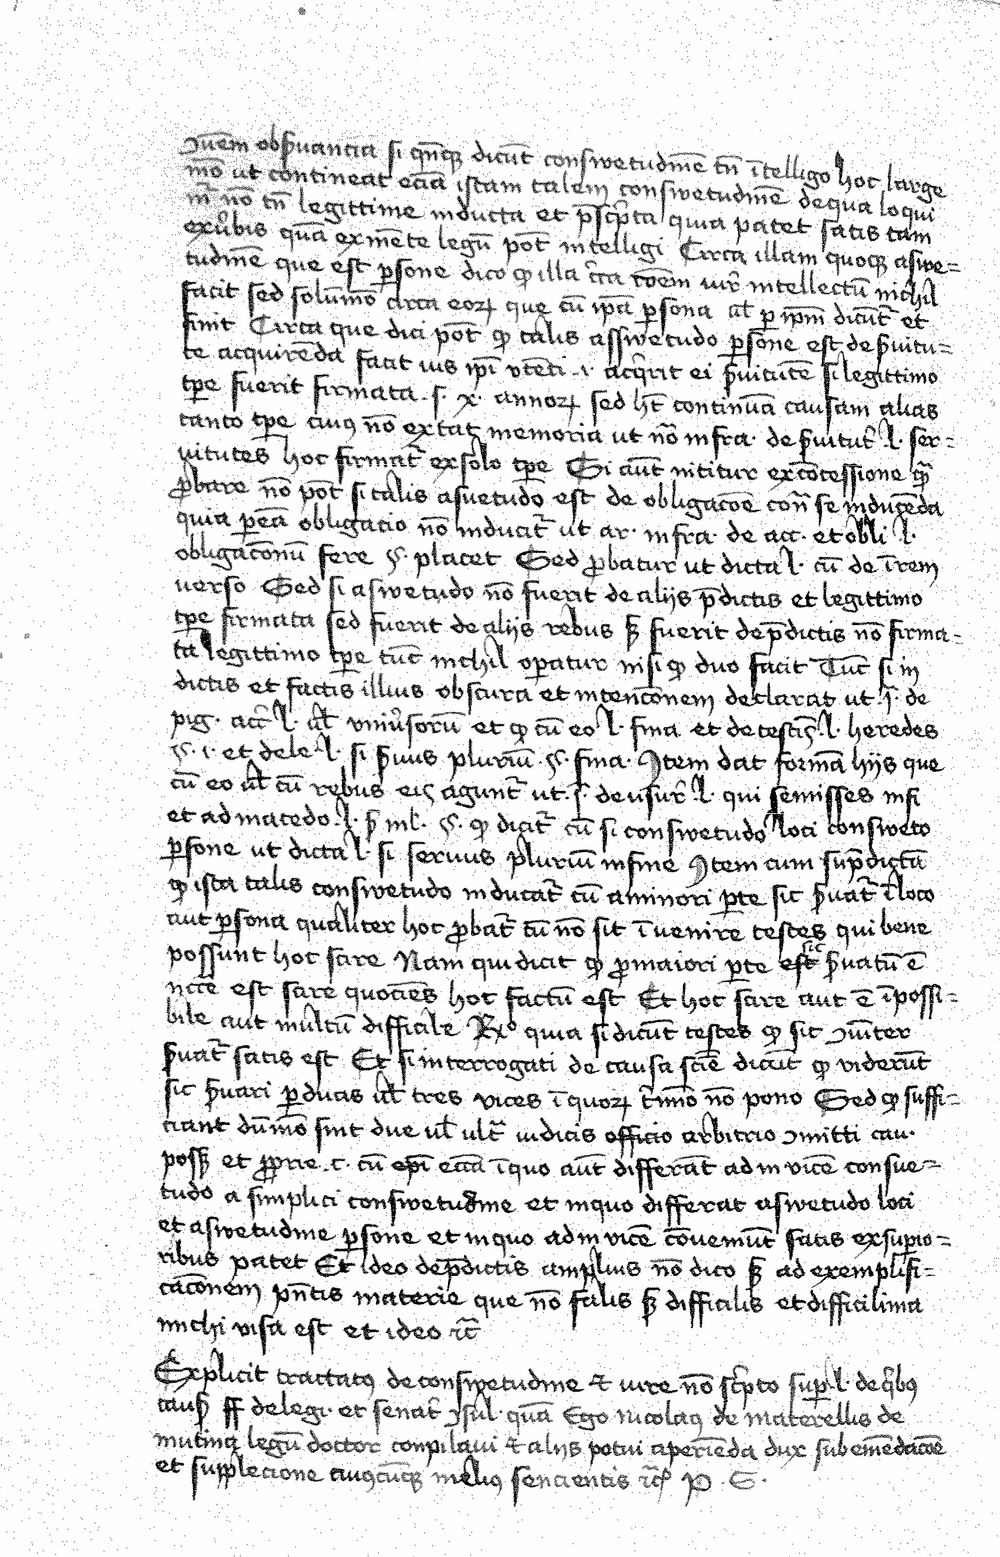 ꝯuem obẜuancia si qn̄cꝫ dicūt conswetudīē tn̄ ītelligo hoc large
mō ut contineat eciā istam talem conswetudīē de qua loqui
mr̄ nō tn̄ legittime inducta et p̄sc̄pta quia patet satis tam
ex v̄bis quā ex mēte legū pōt intelligi Circa illam quoqꝫ aswe=
tudīē que est ꝑsone dico ꝙ illa c̄ca cōem iur̄ intellectū nichil
facit sed solūmō circa eoꝝ que cū ipā ꝑsona ul̄ ꝑ ipm̄ dicūt̄ et
fiūit Circa que dici pōt ꝙ talis asswetudo ꝑsone est de ẜuitu=
te acquirēda facit ius ipī vtēti .i. acq̄rit ei ẜuitutē si legittimo
tꝑe fuerit firmata .s. x. annoꝝ sed h̄t continuā causam alias
tanto tꝑe cuiꝰ nō extat memoria ut nō infra de ẜuitut̄ l. ser=
uitutes hoc firmat̄ ex solo tꝑe Si aūt nititur ex cōcessione qm̄
ꝓbare nō pōt si talis asuetudo est de obligacōe con̄ se inducēda
quia ꝑ eā obligacio nō inducit̄ ut ar. infra de acc. et obli l.
obligacōnū fere §. placet Sed ꝓbatur ut dicta l. cū de ī rem
verso Sed si aswetudo nō fuerit de alijs p̄dictis et legittimo
tꝑe firmata sed fuerit de alijs rebus ẜ fuerit de p̄dictis nō firma=
ta legittimo tꝑe tūc nichil oꝑatur nisi ꝙ duo facit Tūc si in
dictis et factis illius obscura et intencōnem declarat ut .ī. de
pig. acc̄ l. ul̄ vniūsorū et ꝙ cū eo l. fina et de testi§. l. heredes
§. i. et de le l. si ẜuus pluriū §. fina. Item dat formā hijs que
cū eo ul̄ cū rebus eiꝯ agunt̄ ut .ī. de usur̄ .l. qui semisses infi
et ad macedo .l. ẜ ml̄. §. ꝙ dicit̄ cū si conswetudo loci consweto
ꝑsone ut dicta l. si seruus pluriū in fine Item cum sup̄dictū
ꝙ ista talis conswetudo inducat̄ cū a minori ꝑte sic ẜuat̄ ī loco
aut ꝑsona qualiter hoc ꝓbat̄ cū nō sit īuenire testes qui bene
possunt hoc scire Nam qui dicit ꝙ ꝓ maiori ꝑte est sic ẜuatū ē
nccē est scire quociēs hoc factū est Et hoc scire aut ē īpossi=
bile aut multū difficile Rᵒ quia si dicūt testes ꝙ sic ꝯiūter
ẜuat̄ satis est Et si interrogati de causa sciē dicūt ꝙ viderūt
sic ẜuari ꝑ ducas ul̄ tres vices ī quoꝝ t̄mīo nō pono Sed ꝙ suffi=
ciant dūmō sint due ul̄ ult̄ iudicis officio arbitrio ꝯmitti cau.
possꝫ et ꝓprie .c. cū epī eccā ī quo aūt differāt ad in vicē consue=
tudo a simplici conswetudine et in quo differat aswetudo loci
et aswetudine ꝑsone et in quo ad in vicē cōueniūt satis ex suꝑio=
ribus patet Et ideo de p̄dictis amplius nō dico ẜ ad exemplifi=
cacōnem pn̄tis materie que nō falis ẜ difficilis et difficilima
michi visa est et ideo ⁊c̄
Explicit tractatꝰ de conswetudine ⁊ iure nō sc̄pto suꝑ l. de q̄bꝰ
cauẜ ff de legi. et senat̄ ꝯsul. quā Ego nicolaꝰ de materellis de
mutina legū doctor conpilaui ⁊ alijs potui aperiēda dux sub emēdacōe
et supplecione cuiꝰcūqꝫ meliꝰ sencientis ⁊c̄ P. S.